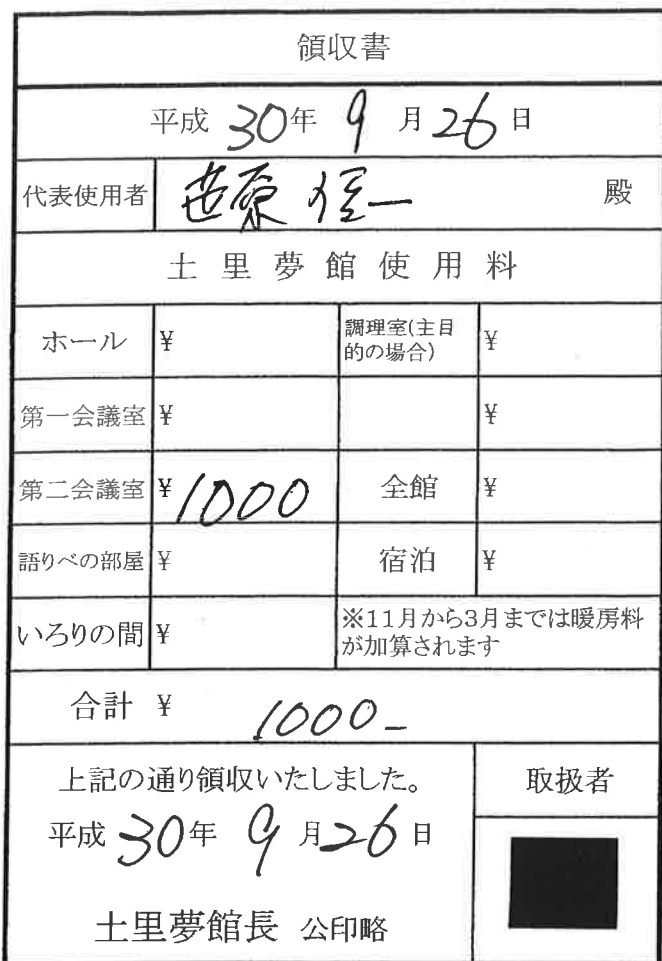 領収書
平成 30年 9月 26日
代表使用者 笹原 信一 殿
土里夢館使用料
ホール ¥ 調理室(主目的の場合) ¥
第一会議室 ¥ ¥
第二会議室 ¥1000 全館 ¥
語りべの部屋 ¥ 宿泊 ¥
いろりの間 ¥ ※11月から3月までは暖房料
が加算されます
合計 ¥ 1000-
上記の通り領収いたしました。 取扱者
平成 30年 9月 26日
土里夢館長 公印略